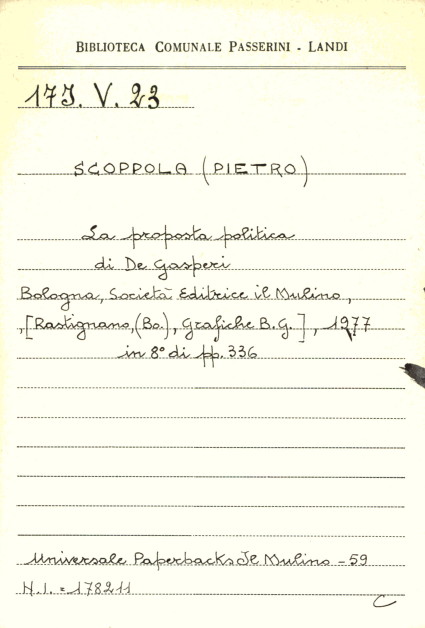 BIBLIOTECA COMUNALE PASSERINI - LANDI
17J. V. 23
SCOPPOLA (PIETRO)
La proposta politica
di De Gasperi
Bologna, Società Editrice il Mulino,
,[Rastignano, (Bo.), Grafiche B.G.], 1977
in 8° di pp. 336
Universale Paperbacks Il Mulino - 59
N.I. = 178211
C